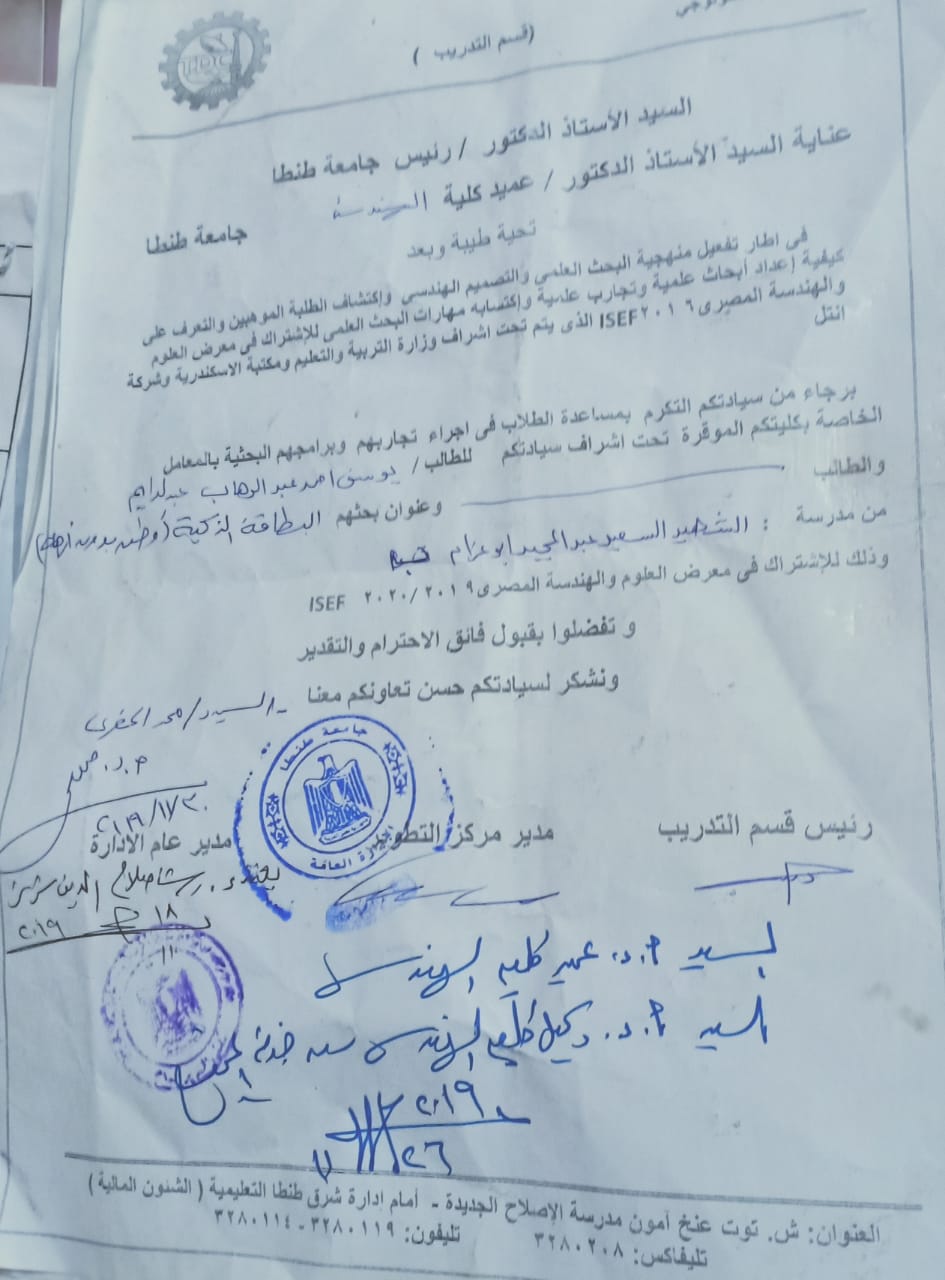 TDC
(قسم التدريب )
السيد الأستاذ الدكتور / رئيس جامعة طنطا
عناية السيد الأستاذ الدكتور / عميد كلية الهندسة
جامعة طنطا
تحية طيبة وبعد
فى اطار تفعيل منهجية البحث العلمي والتصميم الهندسي وإكتشاف الطلبة الموهبين والتعرف على
كيفية إعداد أبحاث علمية وتجارب علمية وإكتسابه مهارات البحث العلمى للإشتراك فى معرض العلوم
والهندسة المصرى ISEF ٢٠١٦ الذى يتم تحت اشراف وزارة التربية والتعليم ومكتبة الاسكندرية وشركة
انتل
برجاء من سيادتكم التكرم بمساعدة الطلاب فى اجراء تجاربهم وبرامجهم البحثية بالمعامل
الخاصة بكليتكم الموقرة تحت اشراف سيادتكم للطالب / يوسف احمد عبد الوهاب
والطالب
وعنوان بحثهم البطاقة الذكية
من مدرسة : الشهيد السعيد عبد المجيد ابو عزام
وذلك للإشتراك فى معرض العلوم والهندسة المصرى ٢٠٢٠/٢٠١٩ ISEF
و تفضلوا بقبول فائق الاحترام والتقدير
ونشكر لسيادتكم حسن تعاونكم معنا
السيد / محمد
جامعة طنطا
الإدارة العامة
رئيس قسم التدريب
مدير مركز التطوير
مدير عام الادارة
صلاح الدين
١٨
١١
٢٠١٩
السيد أ.د. عميد كلية الهندسة
السيد أ.د. وكيل كلية الهندسة
٢٠١٩
٢٦
العنوان: ش. توت عنخ أمون مدرسة الإصلاح الجديدة - أمام إدارة شرق طنطا التعليمية ( الشئون المالية )
تليفون: ٣٢٨٠١١٩ - ٣٢٨٠١١٤
تليفاكس: ٣٢٨٠٢٠٨